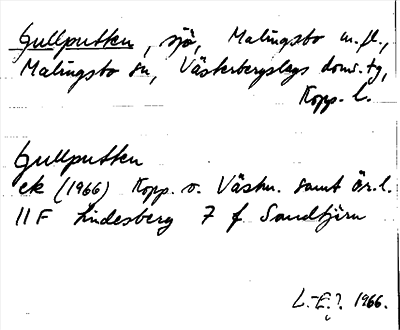 Gullputten, sjö, Malingsbo m.fl.,
Malingsbo sn, Västerbergslags doms.tg,
Kopp. l.
Gullputten
ek (1966) Kopp. o. Västm. samt Ör. l.
11F Lindesberg 7 f Sandtjärn
L.-E. 1966.